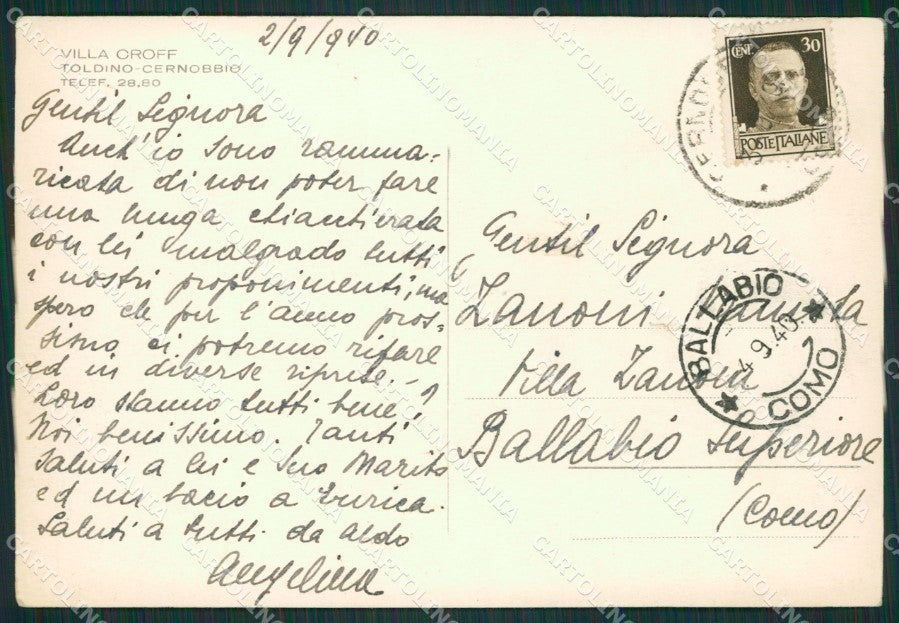 2/9/940
VILLA CROFF
TOLDINO-CERNOBBIO
TELEF. 28.80
Gentil Signora
Anch'io sono ramma-
ricata di non poter fare
una lunga chiacchierata
con lei malgrado tutti
i nostri proponimenti, ma
spero che per l'anno pros-
simo ci potremo rifare
ed in diverse riprese. -
Loro stanno tutti bene?
Noi benissimo. Tanti
saluti a lei e Suo Marito
ed un bacio a Enrica.
Saluti a tutti da Aldo
Angelina
CENT. 30
POSTE ITALIANE
Gentil Signora
Zanoni
Villa Zanoni
Ballabio superiore
(Como)
BALLABIO
4.9.40.
COMO
CARTOLINOMANIA